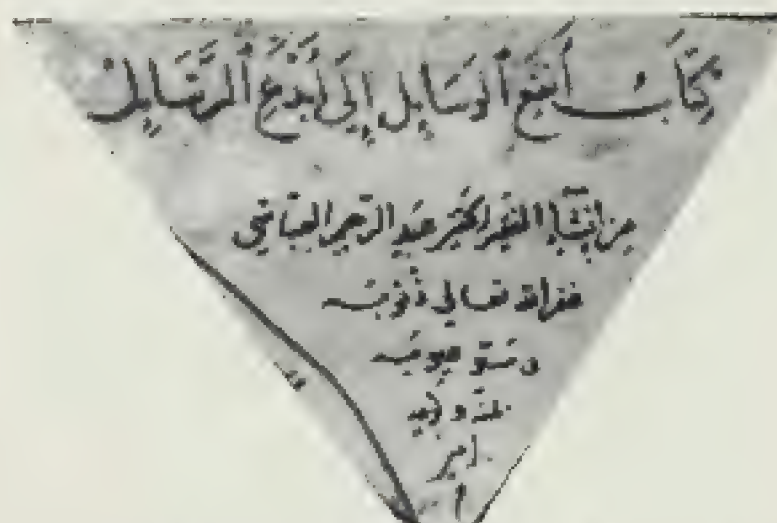 كِتَابُ أَنْفَعِ الْوَسَايِلِ إِلَى أَبْدَعِ الرَّسَايِلِ
من إنشاء الفقير الحقير عبد الرحيم العباسي
غفر الله تعالى ذنوبه
وستر عيوبه
بمنه وكرمه
امين